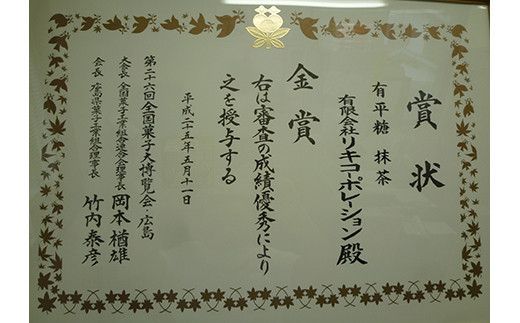 賞状
有平糖 抹茶
有限会社リキコーポレーション殿
金賞
右は審査の成績優秀により
之を授与する
平成二十五年五月十一日
第二十六回全国菓子大博覧会・広島
大会長 全国菓子工業組合連合会理事長 岡本楢雄
会長 広島県菓子工業組合理事長 竹内泰彦